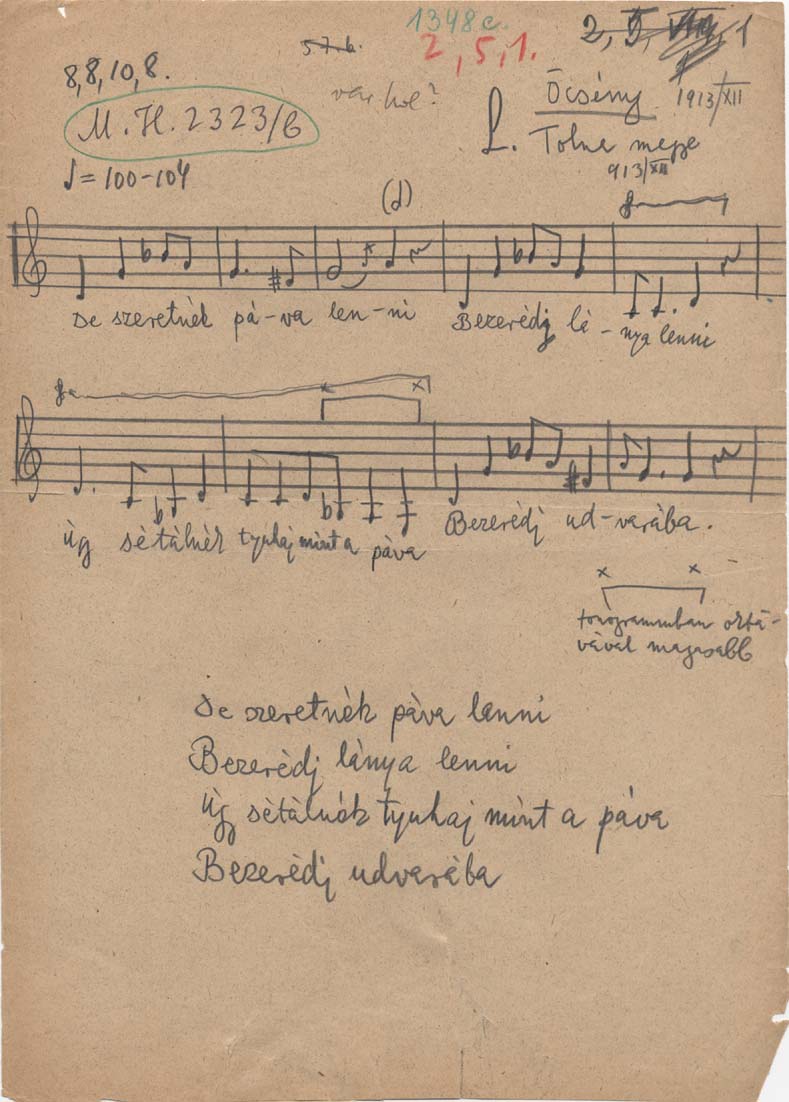 1348 c.
57.b.
2, 5, 1.
2, 5, VIII, 1
8, 8, 10, 8.
var hol?
Őcsény 1913/XII
M. H. 2323/b
L. Tolna megye
♩= 100-104
913/XII
(d)
De szeretnék pá-va len-ni Bezerédj lá-nya lenni
Úgy sétálnék tyuhaj mint a páva Bezerédj ud-varába.
x x
tonogrammban oktá-
vával magasabb
De szeretnék páva lenni
Bezerédj lánya lenni
Úgy sétálnék tyuhaj mint a páva
Bezerédj udvarába